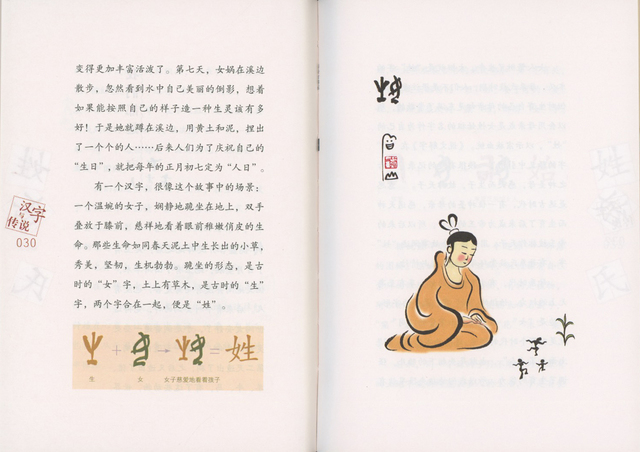 变得更加丰富活泼了。第七天，女娲在溪边
散步，忽然看到水中自己美丽的倒影，想着
如果能按照自己的样子造一种生灵该有多
好！于是她就蹲在溪边，用黄土和泥，捏出
了一个个的人……后来人们为了庆祝自己的
“生日”，就把每年的正月初七定为“人日”。
有一个汉字，很像这个故事中的场景：
一个温婉的女子，娴静地跪坐在地上，双手
叠放于膝前，慈祥地看着眼前稚嫩俏皮的生
命。那些生命如同春天泥土中生长出的小草，
秀美，坚韧，生机勃勃。跪坐的形态，是古
时的“女”字，土上有草木，是古时的“生”
字，两个字合在一起，便是“姓”。
汉字
与
传说
030
+ → = 姓
生 女 女子慈爱地看着孩子